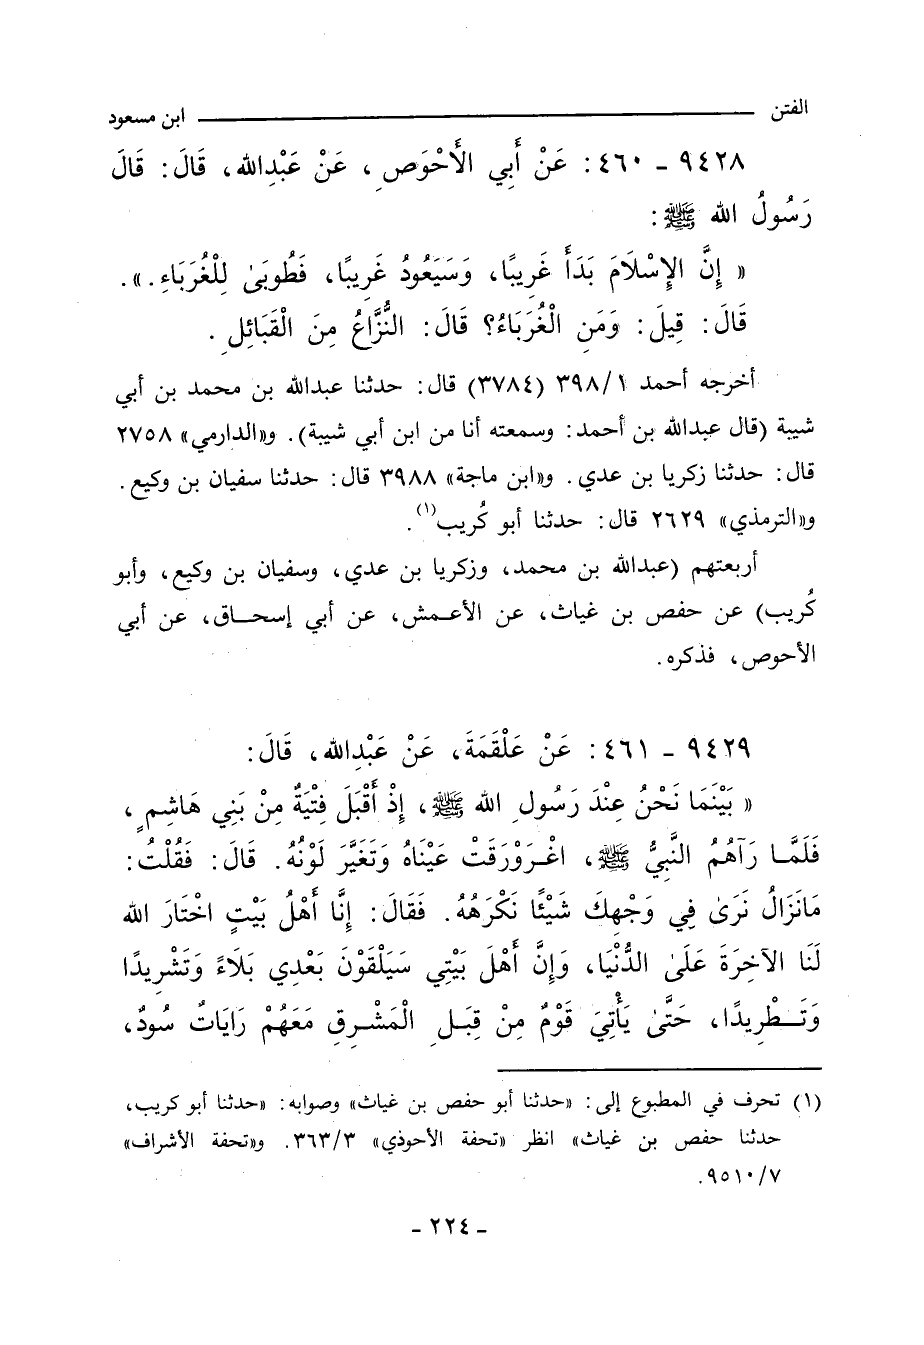 الفتن ــــــــــ ابن مسعود
٩٤٢٨ - ٤٦٠ : عَنْ أَبِي الأَحْوَصِ ، عَنْ عَبْدِالله ، قَالَ : قَالَ
رَسُولُ الله ﷺ :
« إِنَّ الإِسْلَامَ بَدَأَ غَرِيبًا، وَسَيَعُودُ غَرِيبًا، فَطُوبَىٰ لِلْغُرَبَاءِ . » .
قَالَ : قِيلَ : وَمَنِ الْغُرَبَاءُ؟ قَالَ : النُّزَّاعُ مِنَ الْقَبَائِلِ .
أخرجه أحمد ٣٩٨/١ (٣٧٨٤) قال : حدثنا عبدالله بن محمد بن أبي
شيبة (قال عبدالله بن أحمد : وسمعته أنا من ابن أبي شيبة) . و«الدارمي» ٢٧٥٨
قال : حدثنا زكريا بن عدي . و«ابن ماجة» ٣٩٨٨ قال : حدثنا سفيان بن وكيع .
و«الترمذي» ٢٦٢٩ قال : حدثنا أبو كُريب(١) .
أربعتهم (عبدالله بن محمد، وزكريا بن عدي، وسفيان بن وكيع، وأبو
كُريب) عن حفص بن غياث، عن الأعمش، عن أبي إسحاق، عن أبي
الأحوص، فذكره .
٩٤٢٩ - ٤٦١ : عَنْ عَلْقَمَةَ، عَنْ عَبْدِالله ، قَالَ :
« بَيْنَمَا نَحْنُ عِنْدَ رَسُولِ الله ﷺ ، إِذْ أَقْبَلَ فِتْيَةٌ مِنْ بَنِي هَاشِمٍ ،
فَلَمَّا رَآهُمُ النَّبِيُّ ﷺ ، اغْرَوْرَقَتْ عَيْنَاهُ وَتَغَيَّرَ لَوْنُهُ . قَالَ : فَقُلْتُ :
مَانَزَالُ نَرَىٰ فِي وَجْهِكَ شَيْئًا نَكْرَهُهُ . فَقَالَ : إِنَّا أَهْلُ بَيْتٍ اخْتَارَ الله
لَنَا الآخِرَةَ عَلَىٰ الدُّنْيَا، وَإِنَّ أَهْلَ بَيْتِي سَيَلْقَوْنَ بَعْدِي بَلَاءً وَتَشْرِيدًا
وَتَطْرِيدًا، حَتَّىٰ يَأْتِيَ قَوْمٌ مِنْ قِبَلِ الْمَشْرِقِ مَعَهُمْ رَايَاتٌ سُودٌ،
(١) تحرف في المطبوع إلى : «حدثنا أبو حفص بن غياث» وصوابه : «حدثنا أبو كريب،
حدثنا حفص بن غياث» انظر «تحفة الأحوذي» ٣٦٣/٣ . و«تحفة الأشراف»
٩٥١٠/٧ .
- ٢٢٤ -